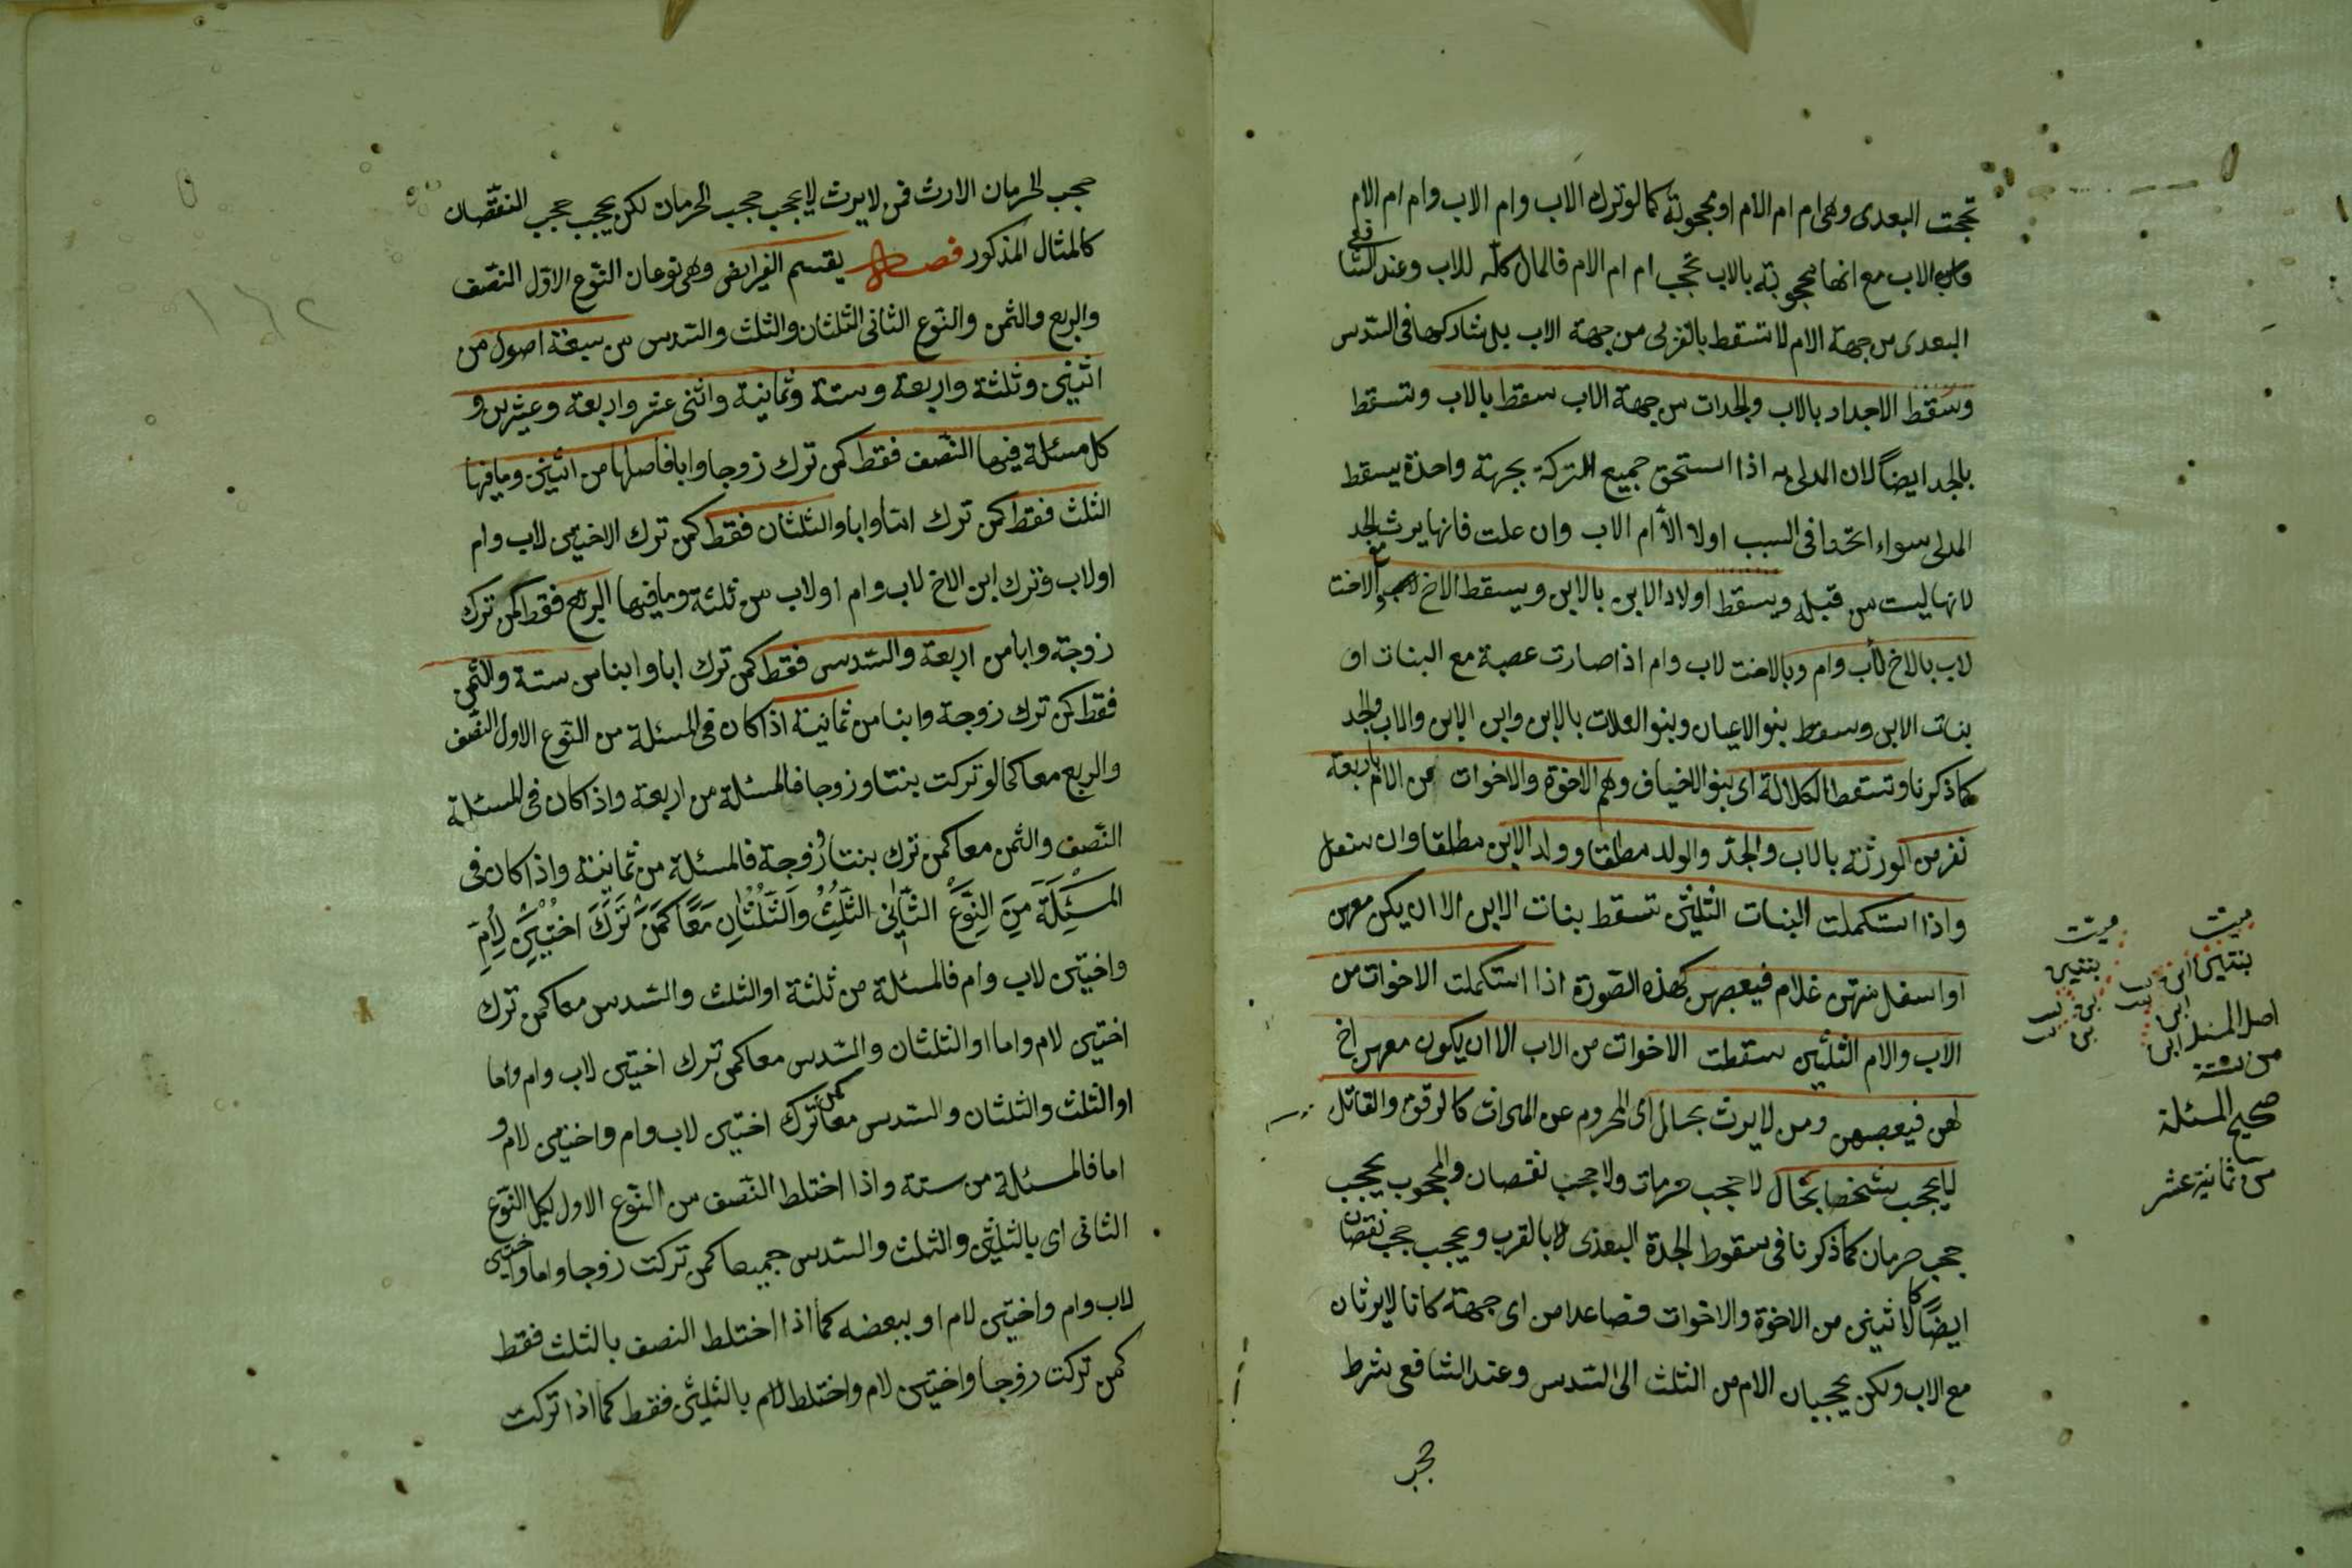 تحجب البعدى وهى ام ام الام او محجوبة كما لو ترك الاب وام الاب وام ام الام
فام الاب مع انها محجوبة بالاب تحجب ام ام الام فالمال كله للاب وعند الشافعى
البعدى من جهة الام لا تسقط بالقربى من جهة الاب بل تشاركها فى السدس
وسقط الاجداد بالاب والجدات من جهة الاب سقط بالاب وتسقط
بالجد ايضا لان المدلى به اذا استحق جميع التركة بجهة واحدة يسقط
المدلى سواء اتحدا فى السبب او لا الا ام الاب وان علت فانها يرث مع الجد
لانها ليست من قبله ويسقط اولاد الابن بالابن ويسقط الاخ والاخت
لاب بالاخ لاب وام وبالاخت لاب وام اذا صارت عصبة مع البنات او
بنات الابن وسقط بنو الاعيان وبنو العلات بالابن وابن الابن والاب والجد
كما ذكرنا وتسقط الكلالة اى بنو الاخياف وهم الاخوة والاخوات من الام باربعة
نفر من الورثة بالاب والجد والولد مطلقا وولد الابن مطلقا وان سفل
واذا استكملت البنات الثلثين تسقط بنات الابن الا ان يكن معهن
او اسفل منهن غلام فيعصبهن كهذه الصورة اذا استكملت الاخوات من
الاب والام الثلثين سقطت الاخوات من الاب الا ان يكون معهن اخ
لهن فيعصبهن ومن لا يرث بحال اى المحروم عن الميراث كالرق والقاتل
لا يحجب شخصا بحال لا حجب حرمان ولا حجب نقصان والمحجوب يحجب
حجب حرمان كما ذكرنا فى سقوط الجدة البعدى لا بالقرب ويحجب حجب نقصان
ايضا كالاثنين من الاخوة والاخوات فصاعدا من اى جهة كانا لا يرثان
مع الاب ولكن يحجبان الام من الثلث الى السدس وعند الشافعى شرط
حجب
ميت
بنتين ابن
اصل المسئلة
من ستة
صحيح المسئلة
من ثمانية عشر
ميت
بنتين
حجب الحرمان الارث فمن لا يرث لا يحجب حجب الحرمان لكن يحجب حجب النقصان
كالمثال المذكور فصل يقسم الفرايض وهى نوعان النوع الاول النصف
والربع والثمن والنوع الثانى الثلثان والثلث والسدس من سبعة اصول من
اثنين وثلثة واربعة وستة وثمانية واثنى عشر واربعة وعشرين و
كل مسئلة فيها النصف فقط كمن ترك زوجا وابا فاصلها من اثنين وما فيها
الثلث فقط كمن ترك اما وابا والثلثان فقط كمن ترك الاختين لاب وام
او لاب وترك ابن الاخ لاب وام او لاب من ثلثة وما فيها الربع فقط كمن ترك
زوجة وابا من اربعة والسدس فقط كمن ترك ابا وابنا من ستة والثمن
فقط كمن ترك زوجة وابنا من ثمانية اذا كان فى المسئلة من النوع الاول النصف
والربع معا كما لو تركت بنتا وزوجا فالمسئلة من اربعة واذا كان فى المسئلة
النصف والثمن معا كمن ترك بنتا وزوجة فالمسئلة من ثمانية واذا كان فى
المسئلة من النوع الثانى الثلث والثلثان معا كمن ترك اختين لام
واختين لاب وام فالمسئلة من ثلثة او الثلث والسدس معا كمن ترك
اختين لام واما او الثلثان والسدس معا كمن ترك اختين لاب وام واما
او الثلث والثلثان والسدس معا كمن ترك اختين لاب وام واختين لام و
اما فالمسئلة من ستة واذا اختلط النصف من النوع الاول لكل النوع
الثانى اى بالثلثين والثلث والسدس جميعا كمن تركت زوجا واما واختين
لاب وام واختين لام او ببعضه كما اذا اختلط النصف بالثلث فقط
كمن تركت زوجا واختين لام واختلط بالثلثين فقط كما اذا تركت